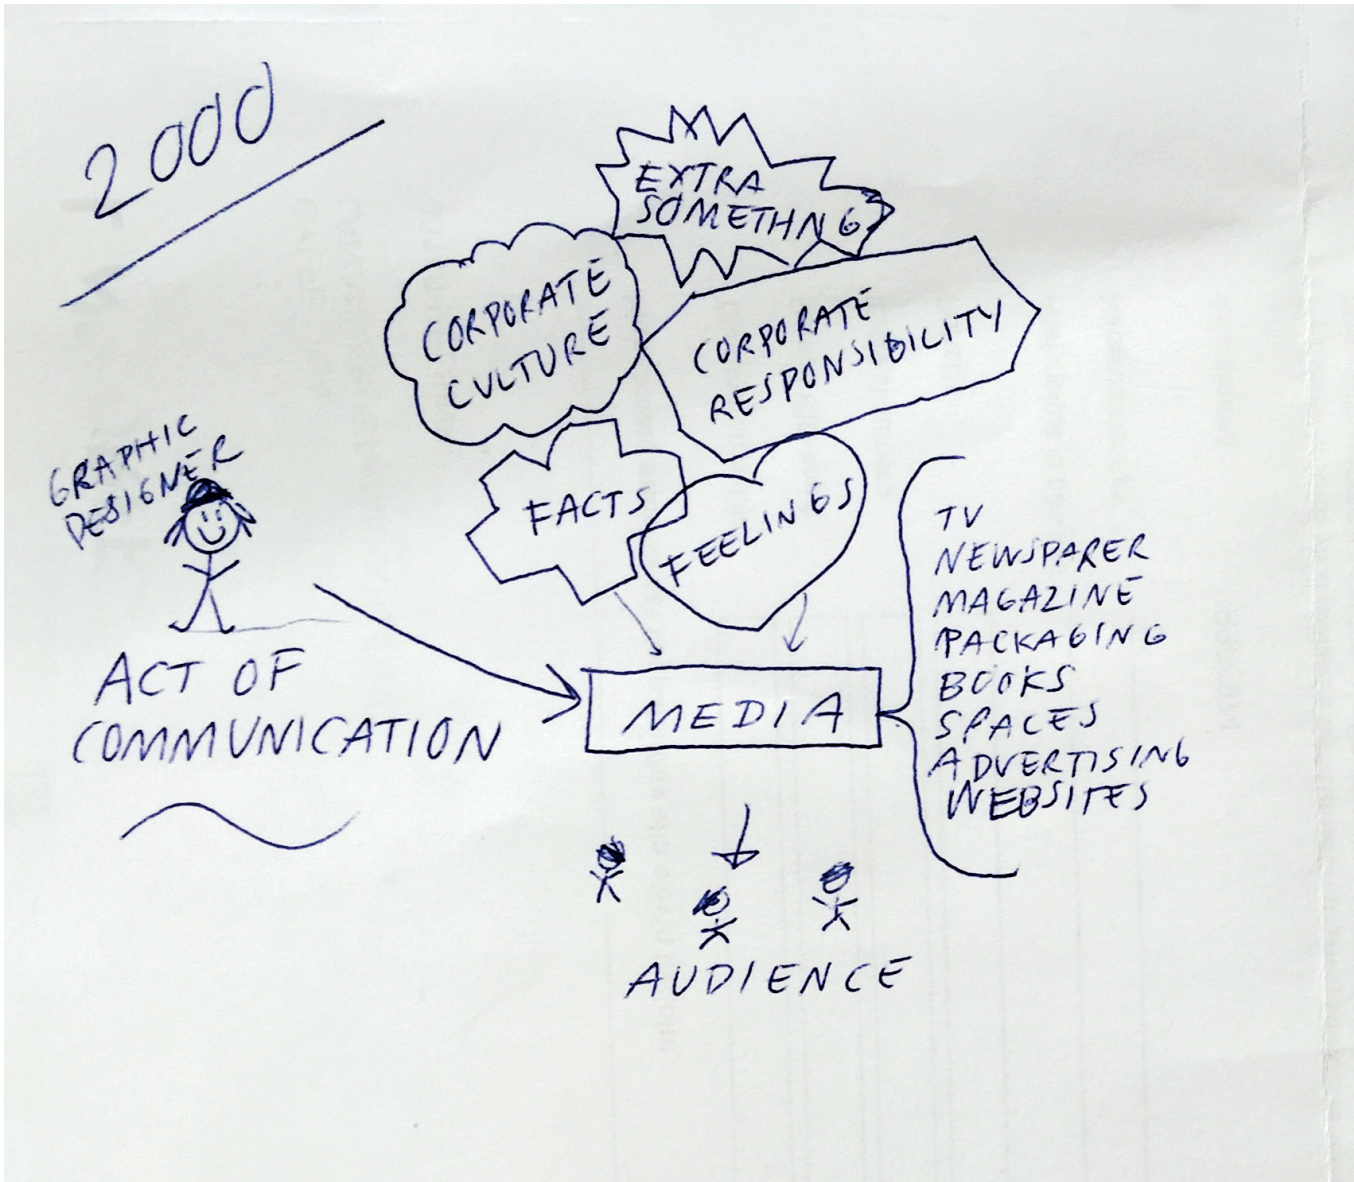 2000
EXTRA
SOMETHNG
CORPORATE
CULTURE
CORPORATE
RESPONSIBILITY
GRAPHIC
DESIGNER
FACTS
FEELINGS
ACT OF
COMMUNICATION
MEDIA
TV
NEWSPAPER
MAGAZINE
PACKAGING
BOOKS
SPACES
ADVERTISING
WEBSITES
AUDIENCE